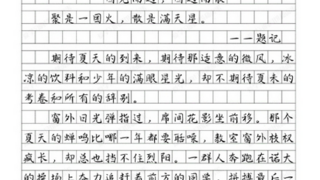 聚是一团火，散是满天星。
——题记
期待夏天的到来，期待那适意的微风，冰
凉的饮料和少年的满眼星光，却不期待夏末的
考卷和所有的辞别。
窗外日光弹指过，席间花影坐前移。那个
夏天的蝉鸣比哪一年都要聒噪，教室窗外枝桠
疯长，却总也挡不住烈阳。一群人奔跑在诺大